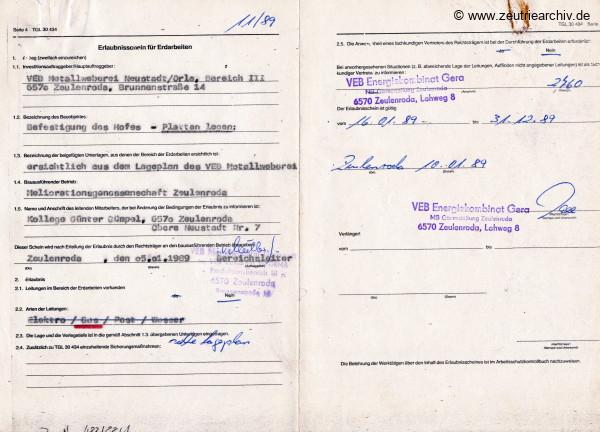 © www.zeufriearchiv.de
Seite 4 TGL 30 434
11/89
Erlaubnisschein für Erdarbeiten
1.1. Investitionsauftraggeber/Hauptauftraggeber:
VEB Metallweberei Neustadt/Orla, Bereich III
6570 Zeulenroda, Brunnenstraße 14
1.2. Bezeichnung des Bauobjektes:
Befestigung des Hofes - Platten legen;
1.3. Bezeichnung der beigefügten Unterlagen, aus denen der Bereich der Erdarbeiten ersichtlich ist:
ersichtlich aus dem Lageplan des VEB Metallweberei
1.4. Bauausführender Betrieb:
Meliorationsgenossenschaft Zeulenroda
1.5. Name und Anschrift des leitenden Mitarbeiters, der bei Änderung der Bedingungen der Erlaubnis zu informieren ist:
Kollege Günter Gümpel, 6570 Zeulenroda
Obere Neustadt Nr. 7
Dieser Schein wird nach Erteilung der Erlaubnis durch den Rechtsträger an den bauausführenden Betrieb
Zeulenroda , den 05.01.1989 Bereichsleiter
(Ort) (Datum)
6570 Zeulenroda
2. Erlaubnis
2.1. Leitungen im Bereich der Erdarbeiten vorhanden
Nein
2.2. Arten der Leitungen:
Elektro / Gas / Post / Wasser
2.3. Die Lage und die Verlegetiefe ist in die gemäß Abschnitt 1.3. übergebenen Unterlagen eingetragen.
2.4. Zusätzlich zu TGL 30 434 einzuhaltende Sicherungsmaßnahmen:
siehe Lageplan
2.5. Die Anwesenheit eines fachkundigen Vertreters des Rechtsträgers ist bei der Durchführung der Erdarbeiten erforderlich:
Nein
Bei unvorhergesehenen Situationen (z. B. abweichende Lage der Leitungen, Auffinden nicht angegebener Leitungen) ist als
kundiger Vertreter zu informieren:
VEB Energiekombinat Gera
MB Gasversorgung Zeulenroda
6570 Zeulenroda, Lohweg 8
2460
Der Erlaubnisschein ist gültig
vom 16.01.89 - bis 31.12.89
Zeulenroda 10.01.89
(Ort) (Datum)
VEB Energiekombinat Gera
MB Gasversorgung Zeulenroda
6570 Zeulenroda, Lohweg 8
Verlängert
vom bis
(Ort) (Datum)
Die Belehrung der Werktätigen über den Inhalt des Erlaubnisscheines ist im Arbeitsschutzkontrollbuch nachzuweisen.